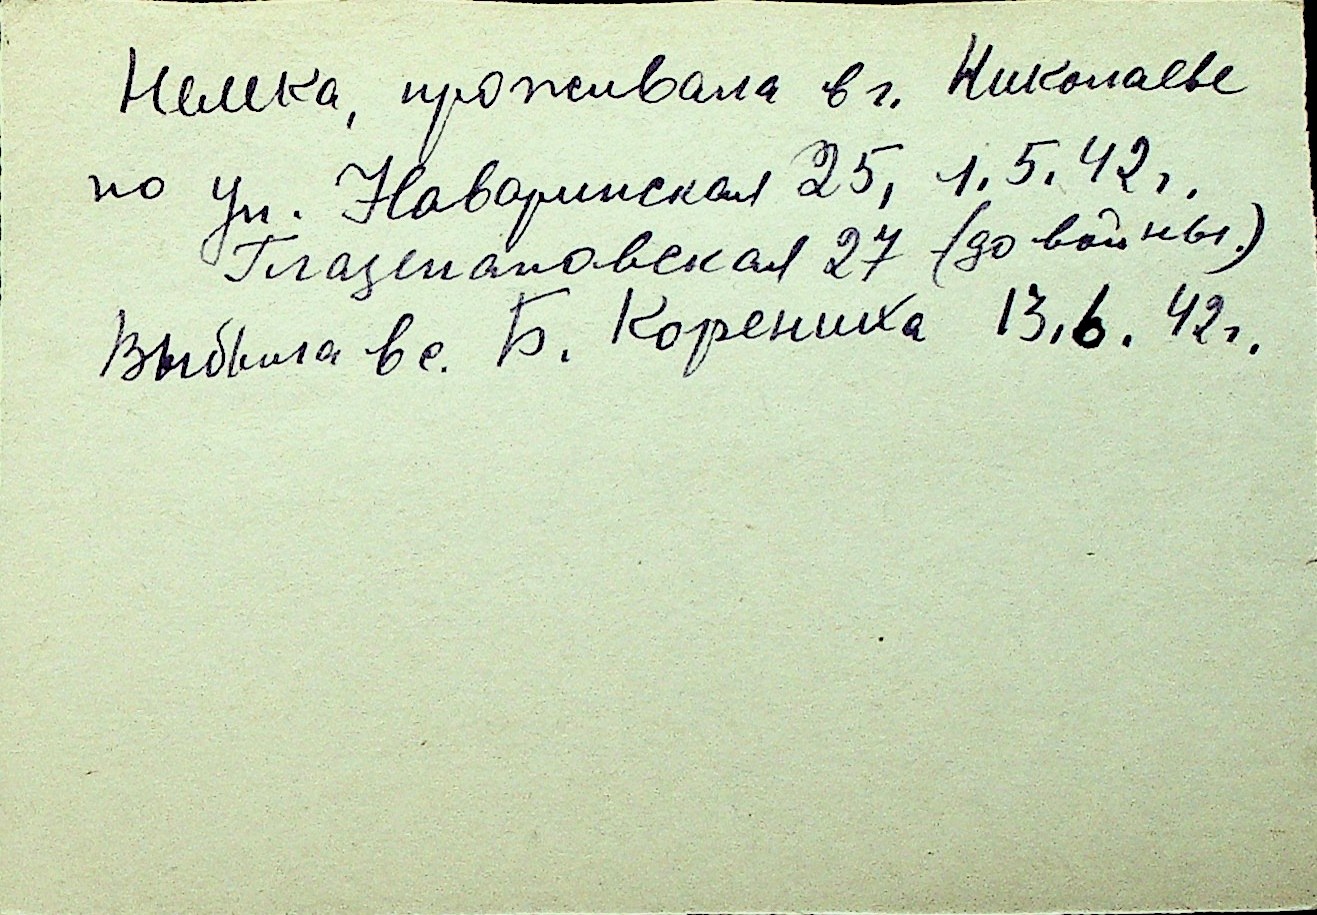 Немка, проживала в г. Николаеве
по ул. Наваринская 25, 1.5.42г.
Глазенаповская 27 (до войны.)
Выбыла в с. Б. Корениха 13.6.42г.